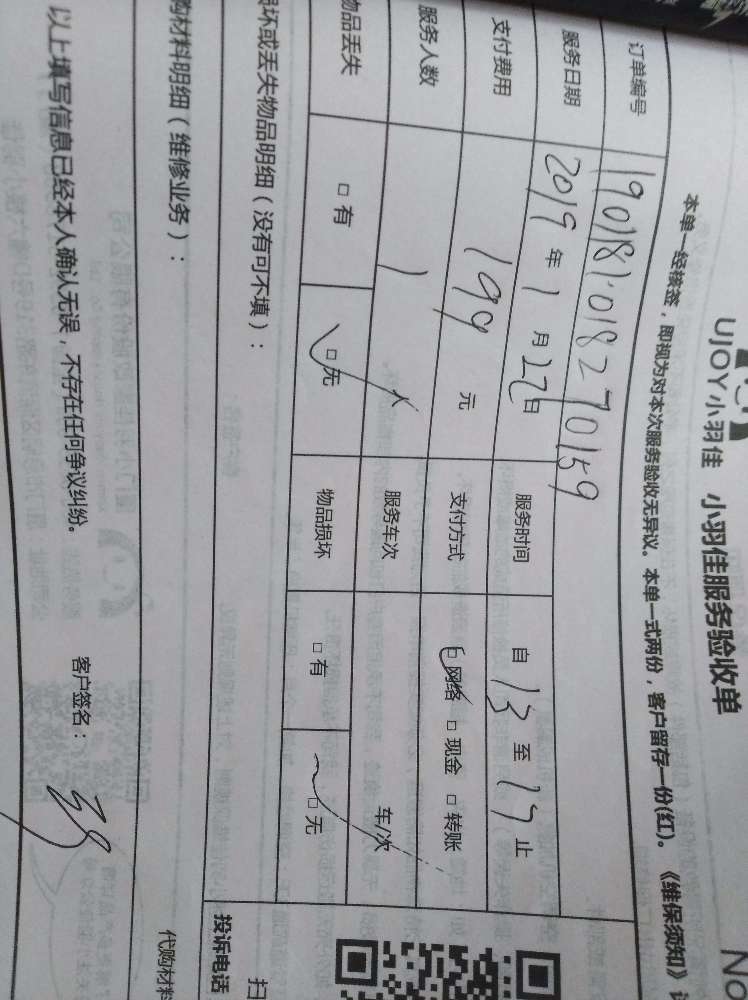 UJOY小羽佳 小羽佳服务验收单
No
本单一经核签，即视为对本次服务验收无异议。本单一式两份，客户留存一份(红)。《维保须知》
订单编号 190181018270159
服务日期 2019 年 1 月 22 日 服务时间 自 13 至 17 止
支付费用 199 元 支付方式 □ 网络 □ 现金 □ 转账
服务人数 1 人 服务车次 车/次
物品丢失 □ 有 □ 无 物品损坏 □ 有 □ 无
损坏或丢失物品明细（没有可不填）：
投诉电话
购材料明细（维修业务）：
代购材料
以上填写信息已经本人确认无误，不存在任何争议纠纷。
客户签名：